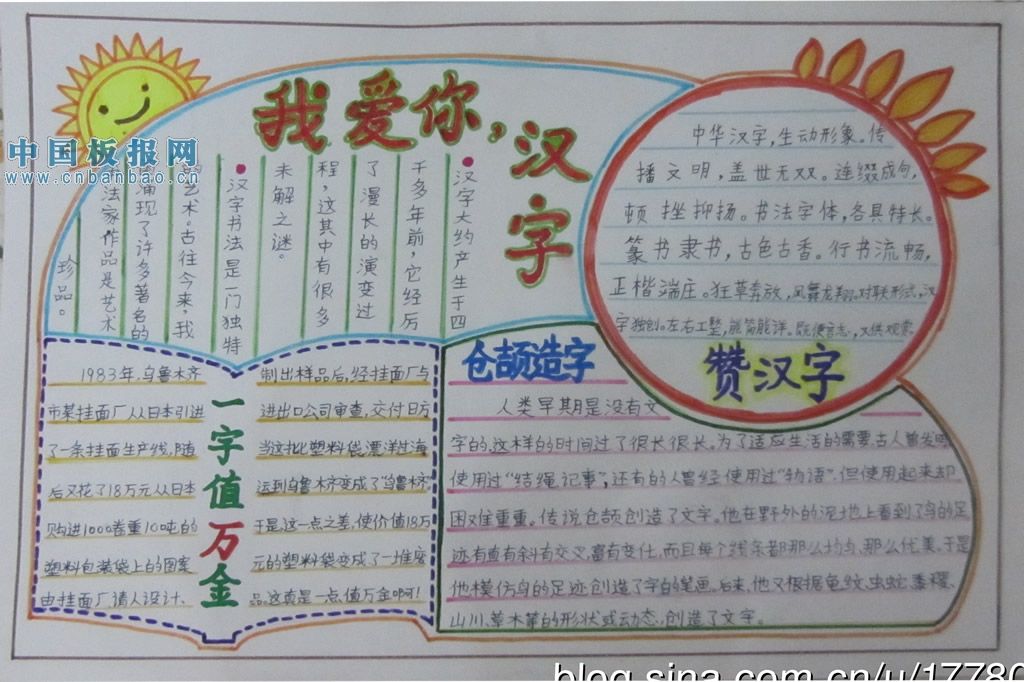 我爱你,汉字
中国板报网
www.cnbanbao.cn
汉字大约产生于四
千多年前,它经历
了漫长的演变过
程,这其中有很多
未解之谜。
汉字书法是一门独特
艺术。古往今来,我
涌现了许多著名的
法家作品是艺术
珍品。
中华汉字,生动形象。传
播文明,盖世无双。连缀成句,
顿挫抑扬。书法字体,各具特长。
篆书隶书,古色古香。行书流畅,
正楷端庄。狂草奔放,凤舞龙翔。对联形式,汉
字独创。左右工整,能简能详。既便言志,又供观赏
赞汉字
一字值万金
1983年,乌鲁木齐
市某挂面厂从日本引进
了一条挂面生产线,随
后又花了18万元从日本
购进1000卷重10吨的
塑料包装袋上的图案
由挂面厂请人设计、
制出样品后,经挂面厂与
进出口公司审查,交付日方
当这批塑料袋漂洋过海
运到乌鲁木齐变成了"乌鲁木齐
于是,这一点之差,使价值18万
元的塑料袋变成了一堆废
品。这真是一点值万金啊!
仓颉造字
人类早期是没有文
字的,这样的时间过了很长很长。为了适应生活的需要,古人曾发明
使用过"结绳记事",还有的人曾经使用过"物语",但使用起来却
困难重重。传说仓颉创造了文字。他在野外的泥地上看到了鸟的足
迹有直有斜有交叉,富有变化,而且每个线条都那么均匀、那么优美,于是
他模仿鸟的足迹创造了字的笔画。后来,他又根据龟纹、虫蛇、黍稷、
山川、草木等的形状或动态,创造了文字。
blog.sina.com.cn/u/17780